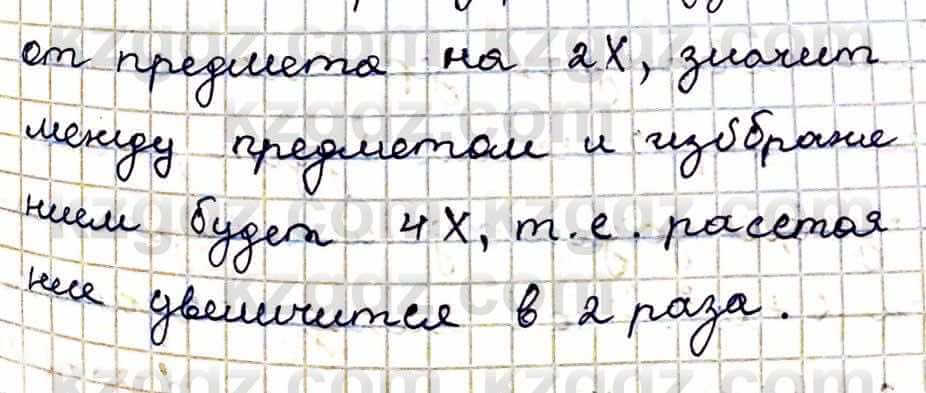 от предмета на 2X, значит
между предметом и изображе
нием будет 4X, т.е. расстоя
ние увеличится в 2 раза.
kzgdz.com